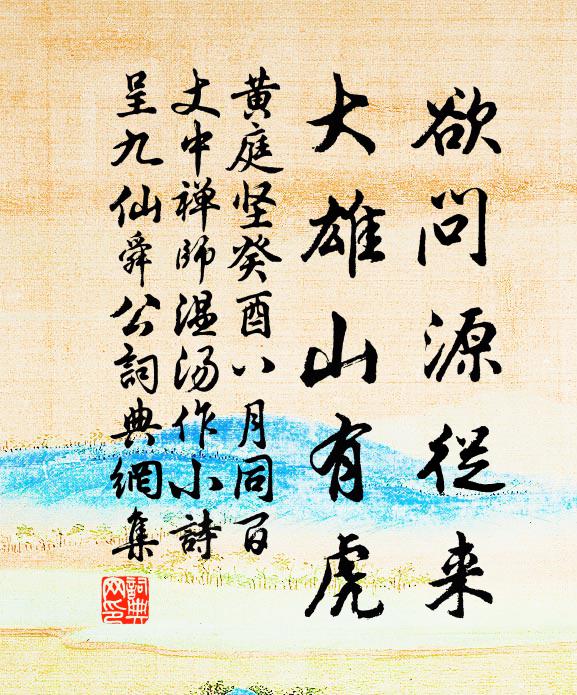 欲问源從来
大雄山有虎
黄庭坚癸酉八月同百
丈中禅師温汤作小詩
呈九仙舜公詞典網集
詞典
网印